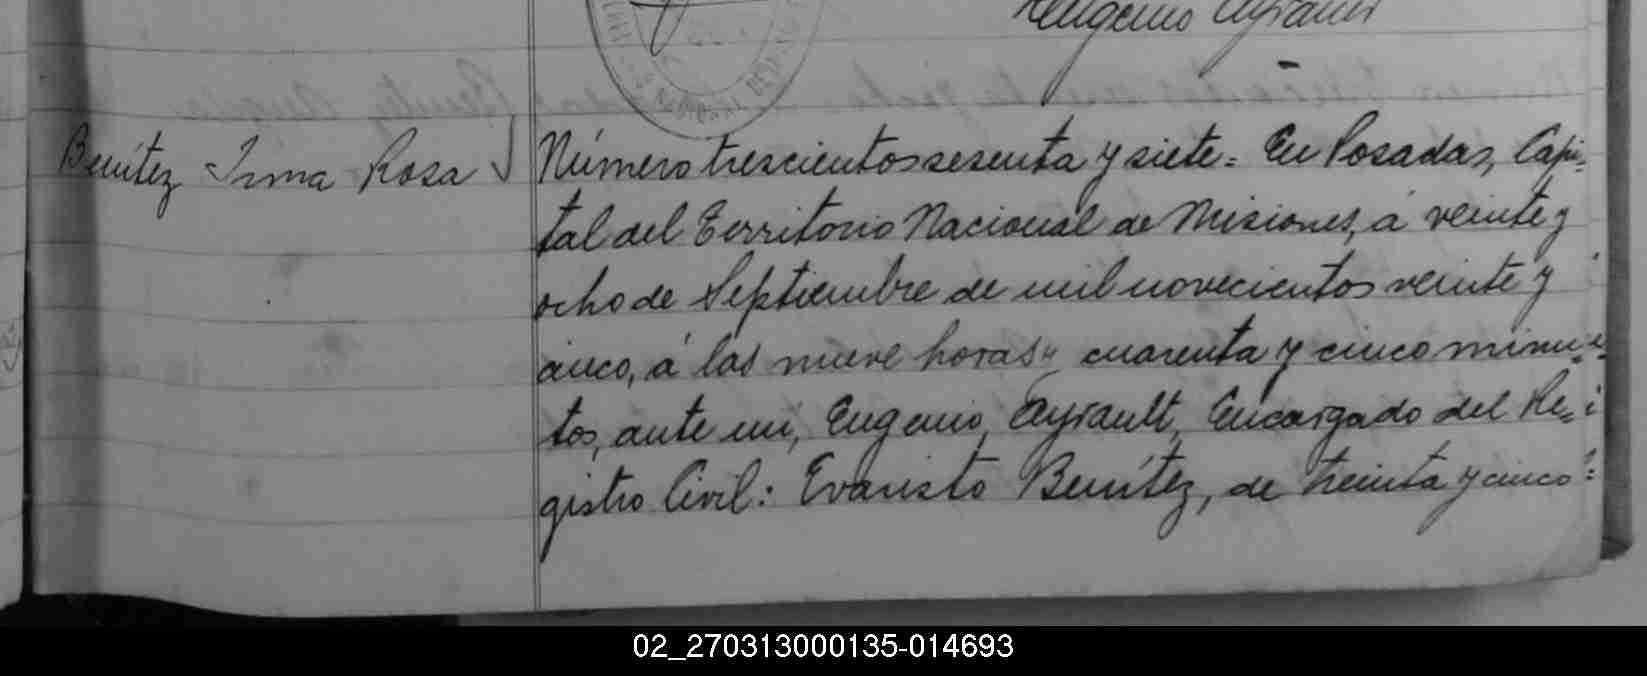 Eugenio Ayrault
REGISTRO NACIONAL
Benítez Irma Rosa
Número trescientos sesenta y siete = En Posadas, Capi-
tal del Territorio Nacional de Misiones, á veinte y
ocho de Septiembre de mil novecientos veinte y
cinco, á las nueve horas y cuarenta y cinco minu-
tos, ante mi, Eugenio Ayrault, Encargado del Re-
gistro Civil: Evaristo Benítez, de treinta y cinco
02_270313000135-014693